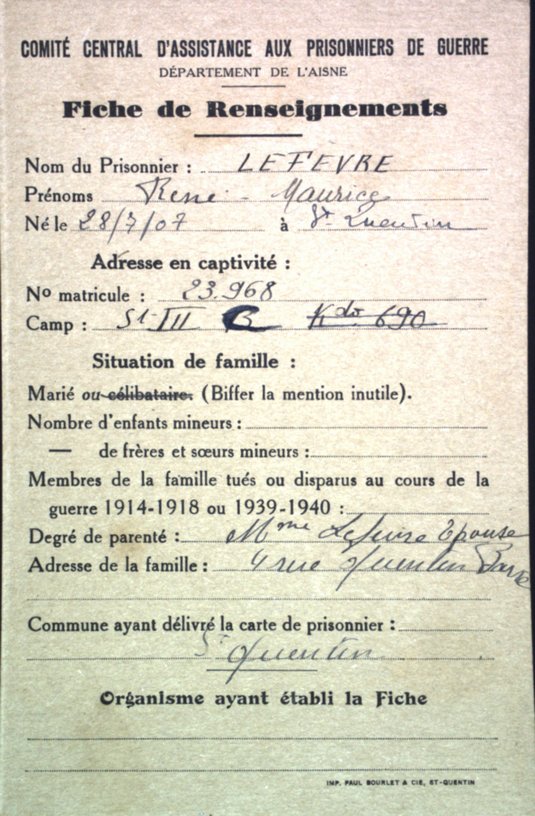 COMITÉ CENTRAL D'ASSISTANCE AUX PRISONNIERS DE GUERRE
DÉPARTEMENT DE L'AISNE
Fiche de Renseignements
Nom du Prisonnier : LEFEVRE
Prénoms René - Maurice
Né le 28/7/07 à St Quentin
Adresse en captivité :
No matricule : 23.968
Camp : St III B Kdo 690
Situation de famille :
Marié ou célibataire. (Biffer la mention inutile).
Nombre d'enfants mineurs :
— de frères et sœurs mineurs :
Membres de la famille tués ou disparus au cours de la
guerre 1914-1918 ou 1939-1940 :
Degré de parenté : Mme Lefevre Epouse
Adresse de la famille : 4 rue Quentin
Commune ayant délivré la carte de prisonnier :
St Quentin
Organisme ayant établi la Fiche
IMP. PAUL BOURLET & CIE, ST-QUENTIN